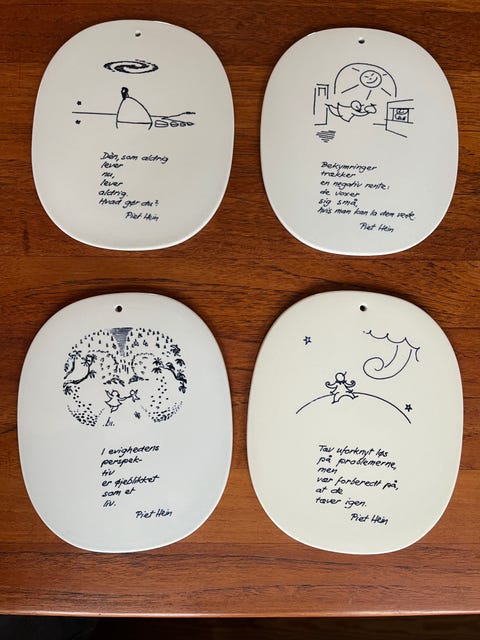 Den, som aldrig
lever
nu,
lever
aldrig.
Hvad gør du?
Piet Hein
Bekymringer
trækker
en negativ rente:
de voxer
sig små,
hvis man kan la dem vente
Piet Hein
I evighedens
perspek-
tiv
er øjeblikket
som et
liv.
Piet Hein
Tav uforknyt løs
på problemerne,
men
vær forberedt på,
at de
tæver igen.
Piet Hein